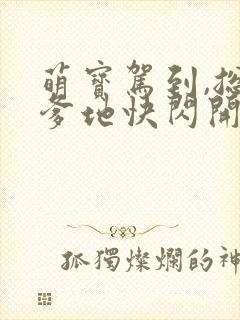 萌寶駕到,總
爹地快閃開
孤獨燦爛的神